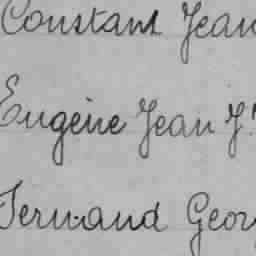 Constant Jean
Eugène Jean J.
Fernand Geor